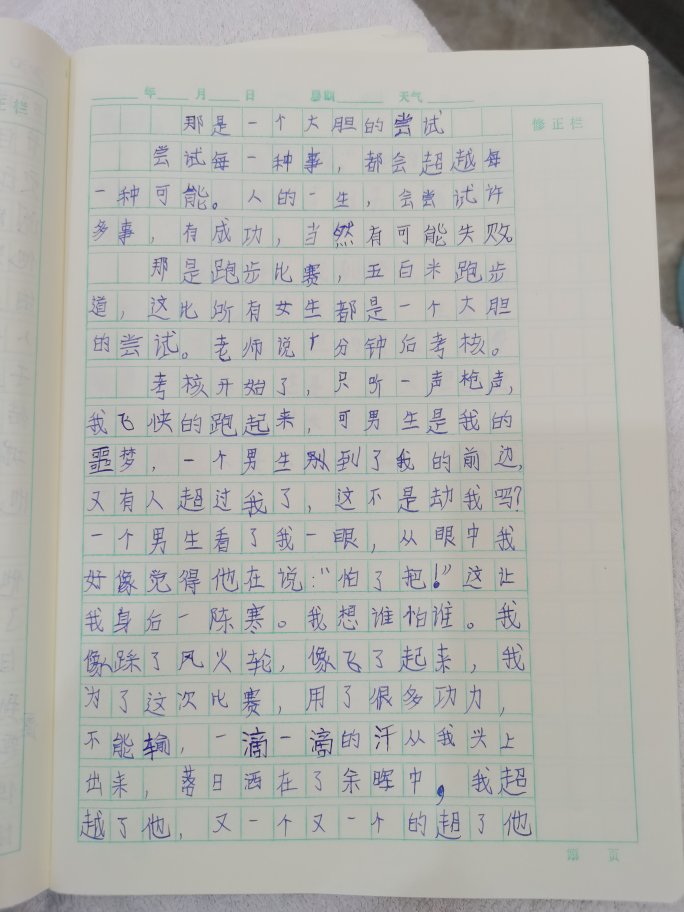 年 月 日 星期 天气
修正栏
那是一个大胆的尝试
尝试每一种事，都会超越每
一种可能。人的一生，会尝试许
多事，有成功，当然有可能失败。
那是跑步比赛，五百米跑步
道，这比所有女生都是一个大胆
的尝试。老师说十分钟后考核。
考核开始了，只听一声枪声，
我飞快的跑起来，可男生是我的
噩梦，一个男生别到了我的前边，
又有人超过我了，这不是劫我吗？
一个男生看了我一眼，从眼中我
好像觉得他在说：“怕了把！”这让
我身后一陈寒。我想谁怕谁。我
像踩了风火轮，像飞了起来，我
为了这次比赛，用了很多功力，
不能输，一滴一滴的汗从我头上
出来，落日洒在了余晖中，我超
越了他，又一个又一个的超了他
第 页